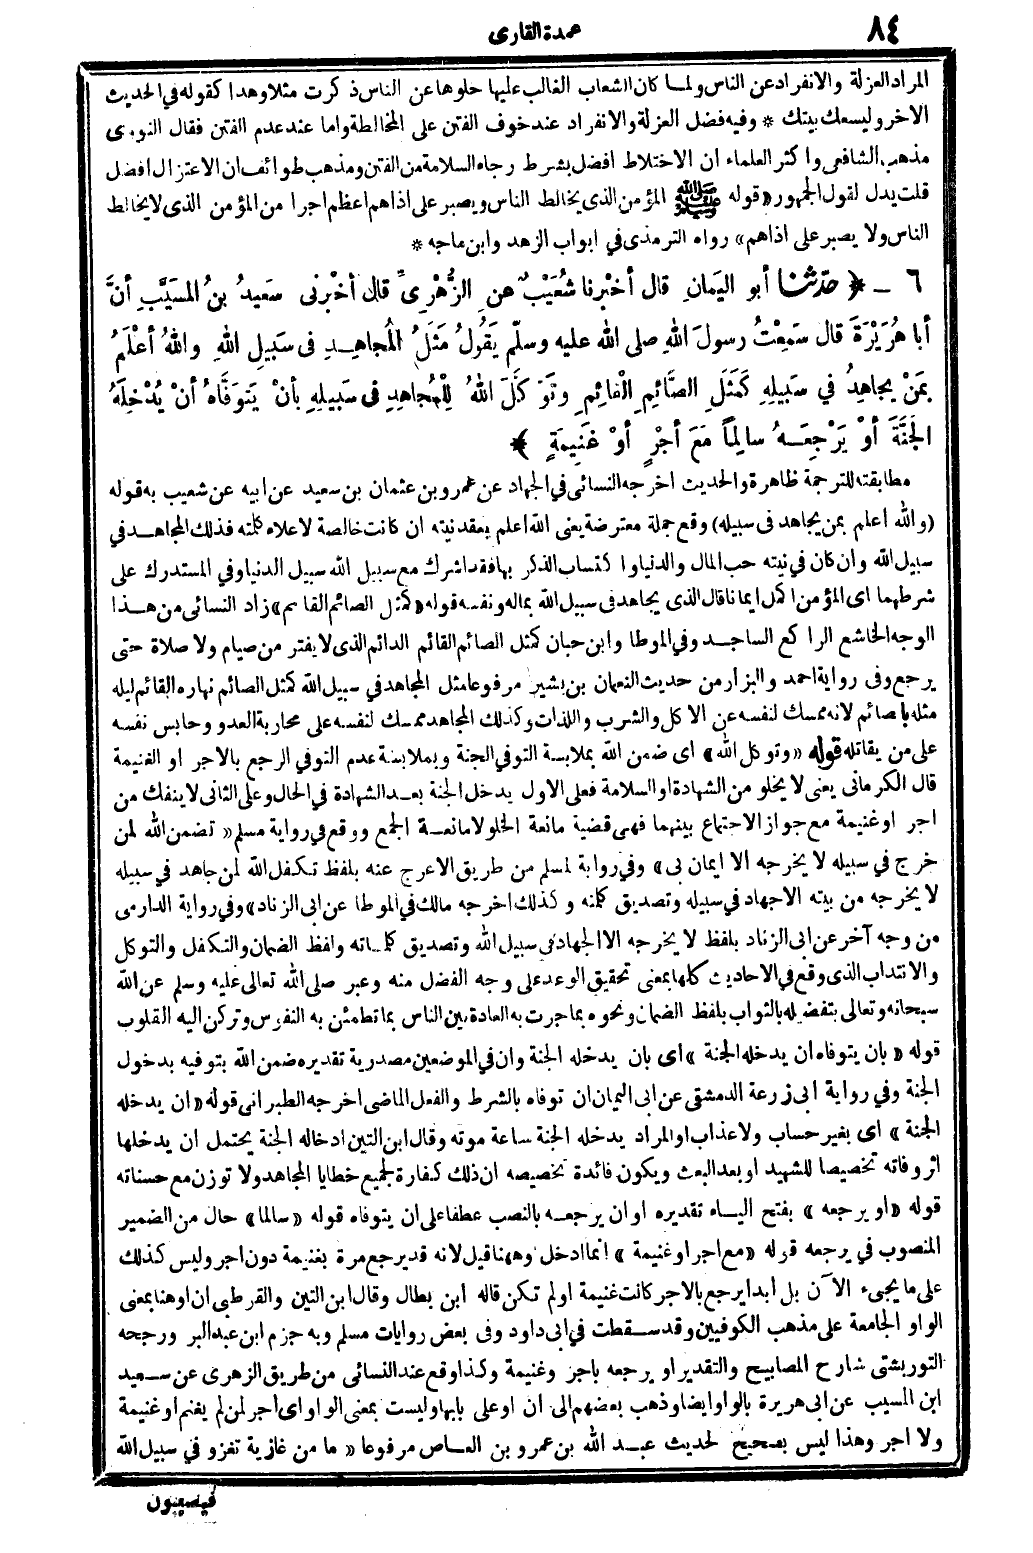 ٨٤
عمدة القارى
المراد العزلة والانفراد عن الناس ولما كان الشعاب الغالب عليها خلوها عن الناس ذكرت مثلا وهذا كقوله في الحديث
الاخر وليسعك بيتك * وفيه فضل العزلة والانفراد عند خوف الفتن على المخالطة واما عند عدم الفتن فقال النووى
مذهب الشافعي واكثر العلماء ان الاختلاط افضل بشرط رجاء السلامة من الفتن ومذهب طوائف ان الاعتزال افضل
قلت يدل لقول الجمهور «قوله ﷺ المؤمن الذى يخالط الناس ويصبر على اذاهم اعظم اجرا من المؤمن الذى لا يخالط
الناس ولا يصبر على اذاهم» رواه الترمذى في ابواب الزهد وابن ماجه *
٦ ـ ﴿ حَدَّثَنا أبو اليَمَانِ قال أخْبرنا شُعَيْبٌ عنِ الزُّهْرِىِّ قال أخْبرْنى سَعِيدُ بنُ المسَيَّبِ أنَّ
أبا هُرَيْرَةَ قال سَمِعْتُ رسولَ اللهِ صلى الله عليه وسلّم يَقُولُ مَثَلُ المُجاهِدِ فى سَبِيلِ اللهِ واللهُ أعْلَمُ
بِمَنْ يجاهِدُ في سَبِيلِهِ كَمَثَلِ الصَّائِمِ القائِمِ وتَوَكَّلَ اللهُ لِلْمُجاهِدِ فى سَبِيلِهِ بأنْ يَتَوَفَّاهُ أنْ يُدْخِلَهُ
الجَنَّةَ أوْ يَرْجِعَهُ سالِمًا مَعَ أجْرٍ أوْ غَنِيمَةٍ ﴾
مطابقته للترجمة ظاهرة والحديث اخرجه النسائى في الجهاد عن عمرو بن عثمان بن سعيد عن ابيه عن شعيب به قوله
(والله اعلم بمن يجاهد فى سبيله) وقع جملة معترضة يعنى الله اعلم بعقد نيته ان كانت خالصة لاعلاء كلمته فذلك المجاهد في
سبيل الله وان كان في نيته حب المال والدنيا واكتساب الذكر بها فقد اشرك مع سبيل الله سبيل الدنيا وفي المستدرك على
شرطهما اى المؤمن اكمل ايمانا قال الذى يجاهد فى سبيل الله بماله ونفسه قوله «كمثل الصائم القائم» زاد النسائى من هذا
الوجه الخاشع الراكع الساجد وفي الموطا وابن حبان كمثل الصائم القائم الدائم الذى لا يفتر من صيام ولا صلاة حتى
يرجع وفى رواية احمد والبزار من حديث النعمان بن بشير مرفوعا مثل المجاهد في سبيل الله كمثل الصائم نهاره القائم ليله
مثله بالصائم لانه ممسك لنفسه عن الاكل والشرب واللذات وكذلك المجاهد ممسك لنفسه على محاربة العدو وحابس نفسه
على من يقاتله قوله «وتوكل الله» اى ضمن الله بملابسة التوفي الجنة وبملابسة عدم التوفي الرجع بالاجر او الغنيمة
قال الكرمانى يعنى لا يخلو من الشهادة او السلامة فعلى الاول يدخل الجنة بعد الشهادة في الحال وعلى الثانى لا ينفك من
اجر او غنيمة مع جواز الاجتماع بينهما فهى قضية مانعة الخلو لا مانعة الجمع ووقع في رواية مسلم «تضمن الله لمن
خرج في سبيله لا يخرجه الا ايمان بى» وفي رواية لمسلم من طريق الاعرج عنه بلفظ تكفل الله لمن جاهد في سبيله
لا يخرجه من بيته الا جهاد في سبيله وتصديق كلمته وكذلك اخرجه مالك في الموطا عن ابى الزناد» وفي رواية الدارمى
من وجه آخر عن ابى الزناد بلفظ لا يخرجه الا الجهاد فى سبيل الله وتصديق كلماته ولفظ الضمان والتكفل والتوكل
والانتداب الذى وقع في الاحاديث كلها بمعنى تحقيق الوعد على وجه الفضل منه وعبر صلى الله تعالى عليه وسلم عن الله
سبحانه وتعالى بتفضيله بالثواب بلفظ الضمان ونحوه بما جرت به العادة بين الناس بما تطمئن به النفوس وتركن اليه القلوب
قوله «بان يتوفاه ان يدخله الجنة» اى بان يدخله الجنة وان في الموضعين مصدرية تقديره ضمن الله بتوفيه بدخول
الجنة وفي رواية ابى زرعة الدمشقى عن ابى اليمان ان توفاه بالشرط والفعل الماضى اخرجه الطبرانى قوله «ان يدخله
الجنة» اى بغير حساب ولا عذاب او المراد يدخله الجنة ساعة موته وقال ابن التين ادخاله الجنة يحتمل ان يدخلها
اثر وفاته تخصيصا للشهيد او بعد البعث ويكون فائدة تخصيصه ان ذلك كفارة لجميع خطايا المجاهد ولا توزن مع حسناته
قوله «او يرجعه» بفتح الياء تقديره او ان يرجعه بالنصب عطفا على ان يتوفاه قوله «سالما» حال من الضمير
المنصوب في يرجعه قوله «مع اجر او غنيمة» انما ادخل او ههنا قيل لانه قد يرجع مرة بغنيمة دون اجر وليس كذلك
على ما يجىء الآن بل أبدا يرجع بالاجر كانت غنيمة او لم تكن قاله ابن بطال وقال ابن التين والقرطبى ان او هنا بمعنى
الواو الجامعة على مذهب الكوفيين وقد سقطت في ابى داود وفى بعض روايات مسلم وبه جزم ابن عبد البر ورجحه
التوربشتى شارح المصابيح والتقدير او يرجعه باجر وغنيمة وكذا وقع عند النسائى من طريق الزهرى عن سعيد
ابن المسيب عن ابى هريرة بالواو ايضا وذهب بعضهم الى ان او على بابها وليست بمعنى الواو اى اجر لمن لم يغنم او غنيمة
ولا اجر وهذا ليس بصحيح لحديث عبد الله بن عمرو بن العاص مرفوعا «ما من غازية تغزو في سبيل الله
فيصيبون